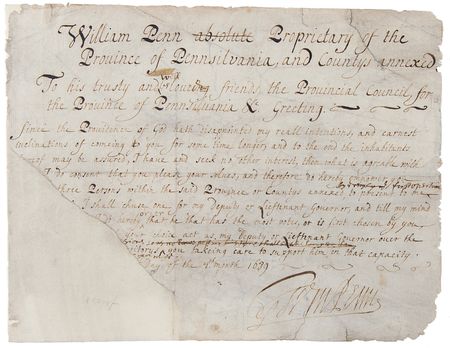 William Penn absolute Proprietary of the
Province of Pennsilvania, and Countys annexed
To his trusty and well loveing friends, the Provincial Council, for
the Province of Pennsilvania &c Greeting.
Since the Providence of God hath disapointed my reall intentions, and earnest
inclinations of comeing to you, for some time longer, and to the end the inhabitants
may be assured, I have and seek no other interest, then what is agreable with
I do consent that you please your selves, and therefore do hereby
three Persons within the said Province or Countys annexed to present to me
I shall chuse one for my Deputy or Lieftenant Governor, and till my mind
hereby that he that has the most votes, or is first chosen by you
choice act as my Deputy or Lieftenant Governor over the
you takeing care to support him in that capacity.
of the month 1689
Wm Penn